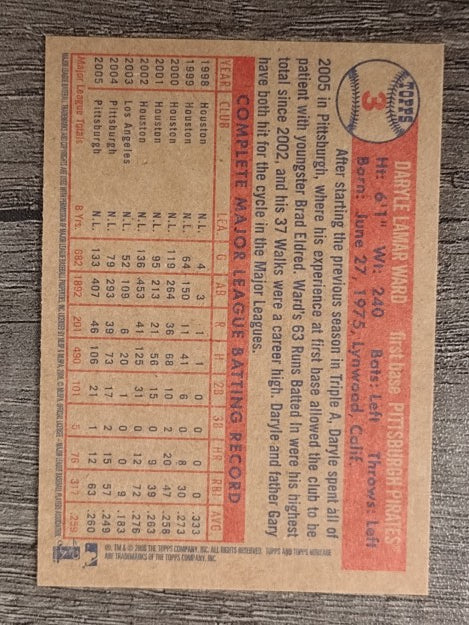 TOPPS
3
DARYLE LAMAR WARD first base PITTSBURGH PIRATES
Ht: 6'1" Wt: 240 Bats: Left Throws: Left
Born: June 27, 1975, Lynwood, Calif.
After starting the previous season in Triple A, Daryle spent all of
2005 in Pittsburgh, where his experience at first base allowed the club to be
patient with youngster Brad Eldred. Ward's 63 Runs Batted In were his highest
total since 2002, and his 37 Walks were a career high. Daryle and father Gary
have both hit for the cycle in the Major Leagues.
COMPLETE MAJOR LEAGUE BATTING RECORD
YEAR CLUB LEA G AB R H 2B 3B HR RBI AVG
1998 Houston N.L. 4 3 1 1 0 0 0 0 .333
1999 Houston N.L. 64 150 11 41 6 0 8 30 .273
2000 Houston N.L. 119 264 36 68 10 2 20 47 .258
2001 Houston N.L. 95 213 21 56 15 0 9 39 .263
2002 Houston N.L. 136 453 41 125 31 0 12 72 .276
2003 Los Angeles N.L. 52 109 6 20 1 0 0 9 .183
2004 Pittsburgh N.L. 79 293 39 73 17 2 15 57 .249
2005 Pittsburgh N.L. 133 407 46 106 21 1 12 63 .260
Major League Totals 8 Yrs. 682 1892 201 490 101 5 76 317 .259
®, TM & © 2006 THE TOPPS COMPANY, INC. ALL RIGHTS RESERVED. TOPPS AND TOPPS HERITAGE
ARE TRADEMARKS OF THE TOPPS COMPANY, INC.